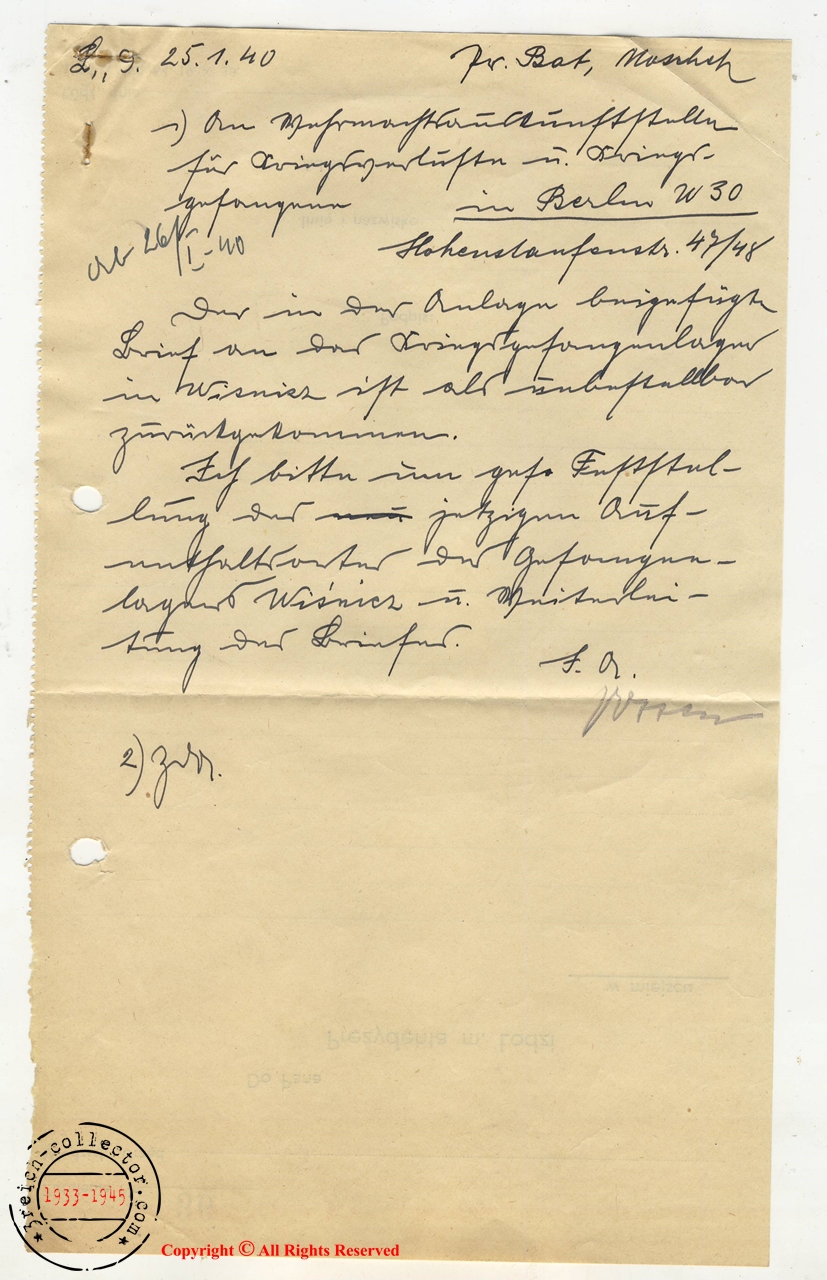 L., d. 25.1.40
1) An Wehrmachtsauskunftstelle
für Kriegsverluste u. Kriegs-
gefangene in Berlin W 30
ab 26/I.-40
Hohenstaufenstr. 47/48
Der in der Anlage beigefügte
Brief an das Kriegsgefangenlager
in Wisnicz ist als unbestellbar
zurückgekommen.
Ich bitte um gefl. Feststel-
lung des jetzigen Auf-
enthaltsortes des Gefangen-
lagers Wiśnicz u. Weiterlei-
tung des Briefes.
I. A.
2) ZdA.
w miejscu
Prezydenta m. Łodzi
Do Pana
3reich-collector.com
1933-1945
Copyright © All Rights Reserved